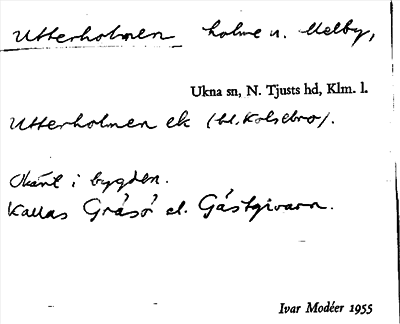 Utterholmen holme n. Melby,
Ukna sn, N. Tjusts hd, Klm. l.
Utterholmen ek (bl. Kolsebro).
Okänt i bygden.
Kallas Gråsö el. Gästgivarn.
Ivar Modéer 1955